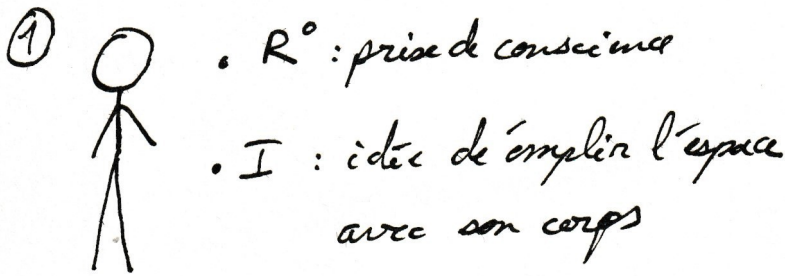 ①
• R° : prise de conscience
• I : idée d'emplir l'espace
avec son corps